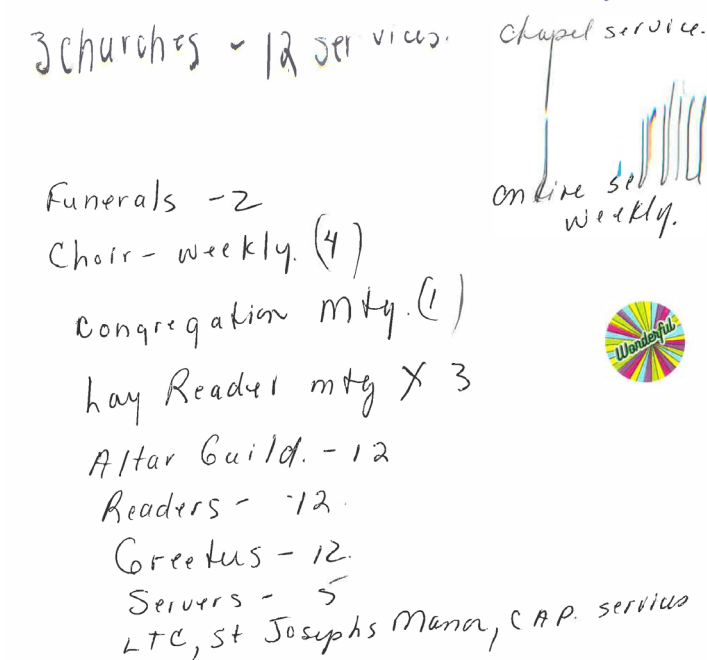 3 churches - 12 services.
chapel service.
online service
weekly.
Funerals - 2
Choir - weekly. (4)
Congregation mtg. (1)
Wonderful
Lay Reader mtg X 3
Altar Guild. - 12
Readers - 12.
Greeters - 12.
Servers - 5
LTC, St Josephs Manor, CAP. services